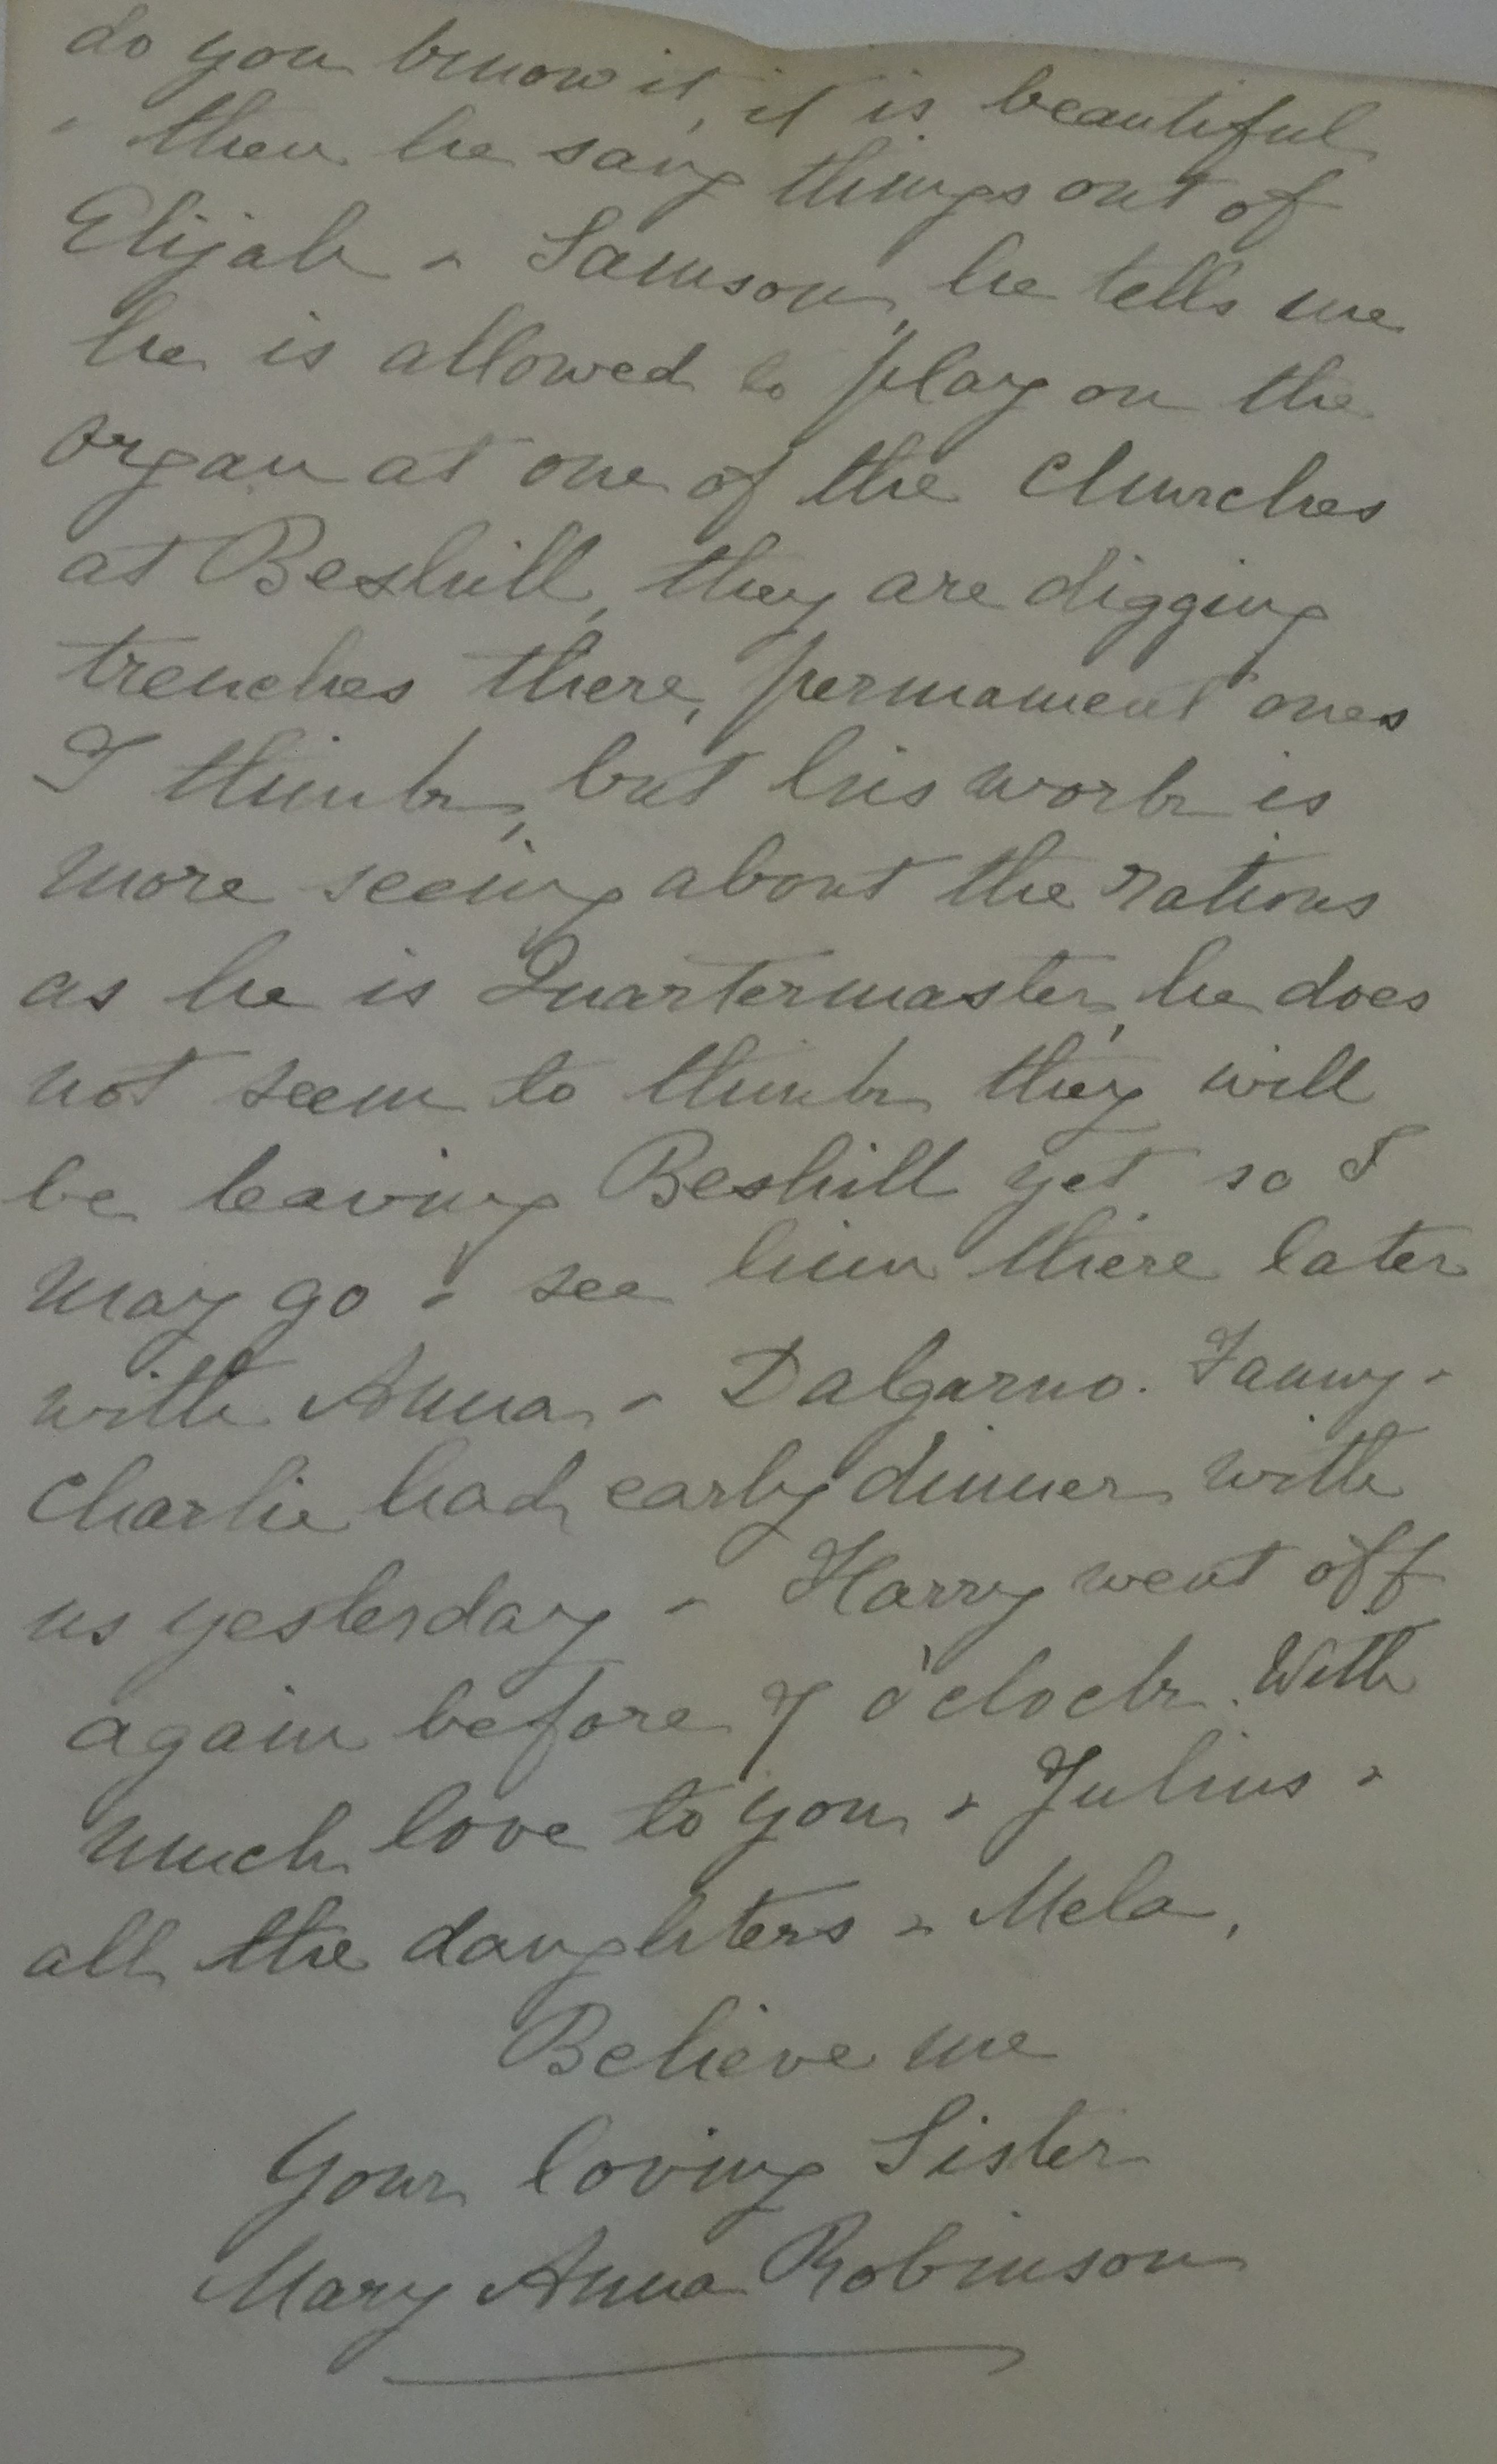 do you know it, it is beautiful
& then he sang things out of
Elijah & Samson, he tells me
he is allowed to play on the
organ at one of the Churches
at Bexhill, they are digging
trenches there, permanent ones
I think, but his work is
more seeing about the rations
as he is Quartermaster, he does
not seem to think they will
be leaving Bexhill yet so I
may go & see him there later
with Anna & Dalgarno. Fanny &
Charlie had early dinner with
us yesterday & Harry went off
again before 7 o'clock. With
much love to you & Julius &
all the daughters & Mela,
Believe me
Your loving Sister
Mary Anna Robinson